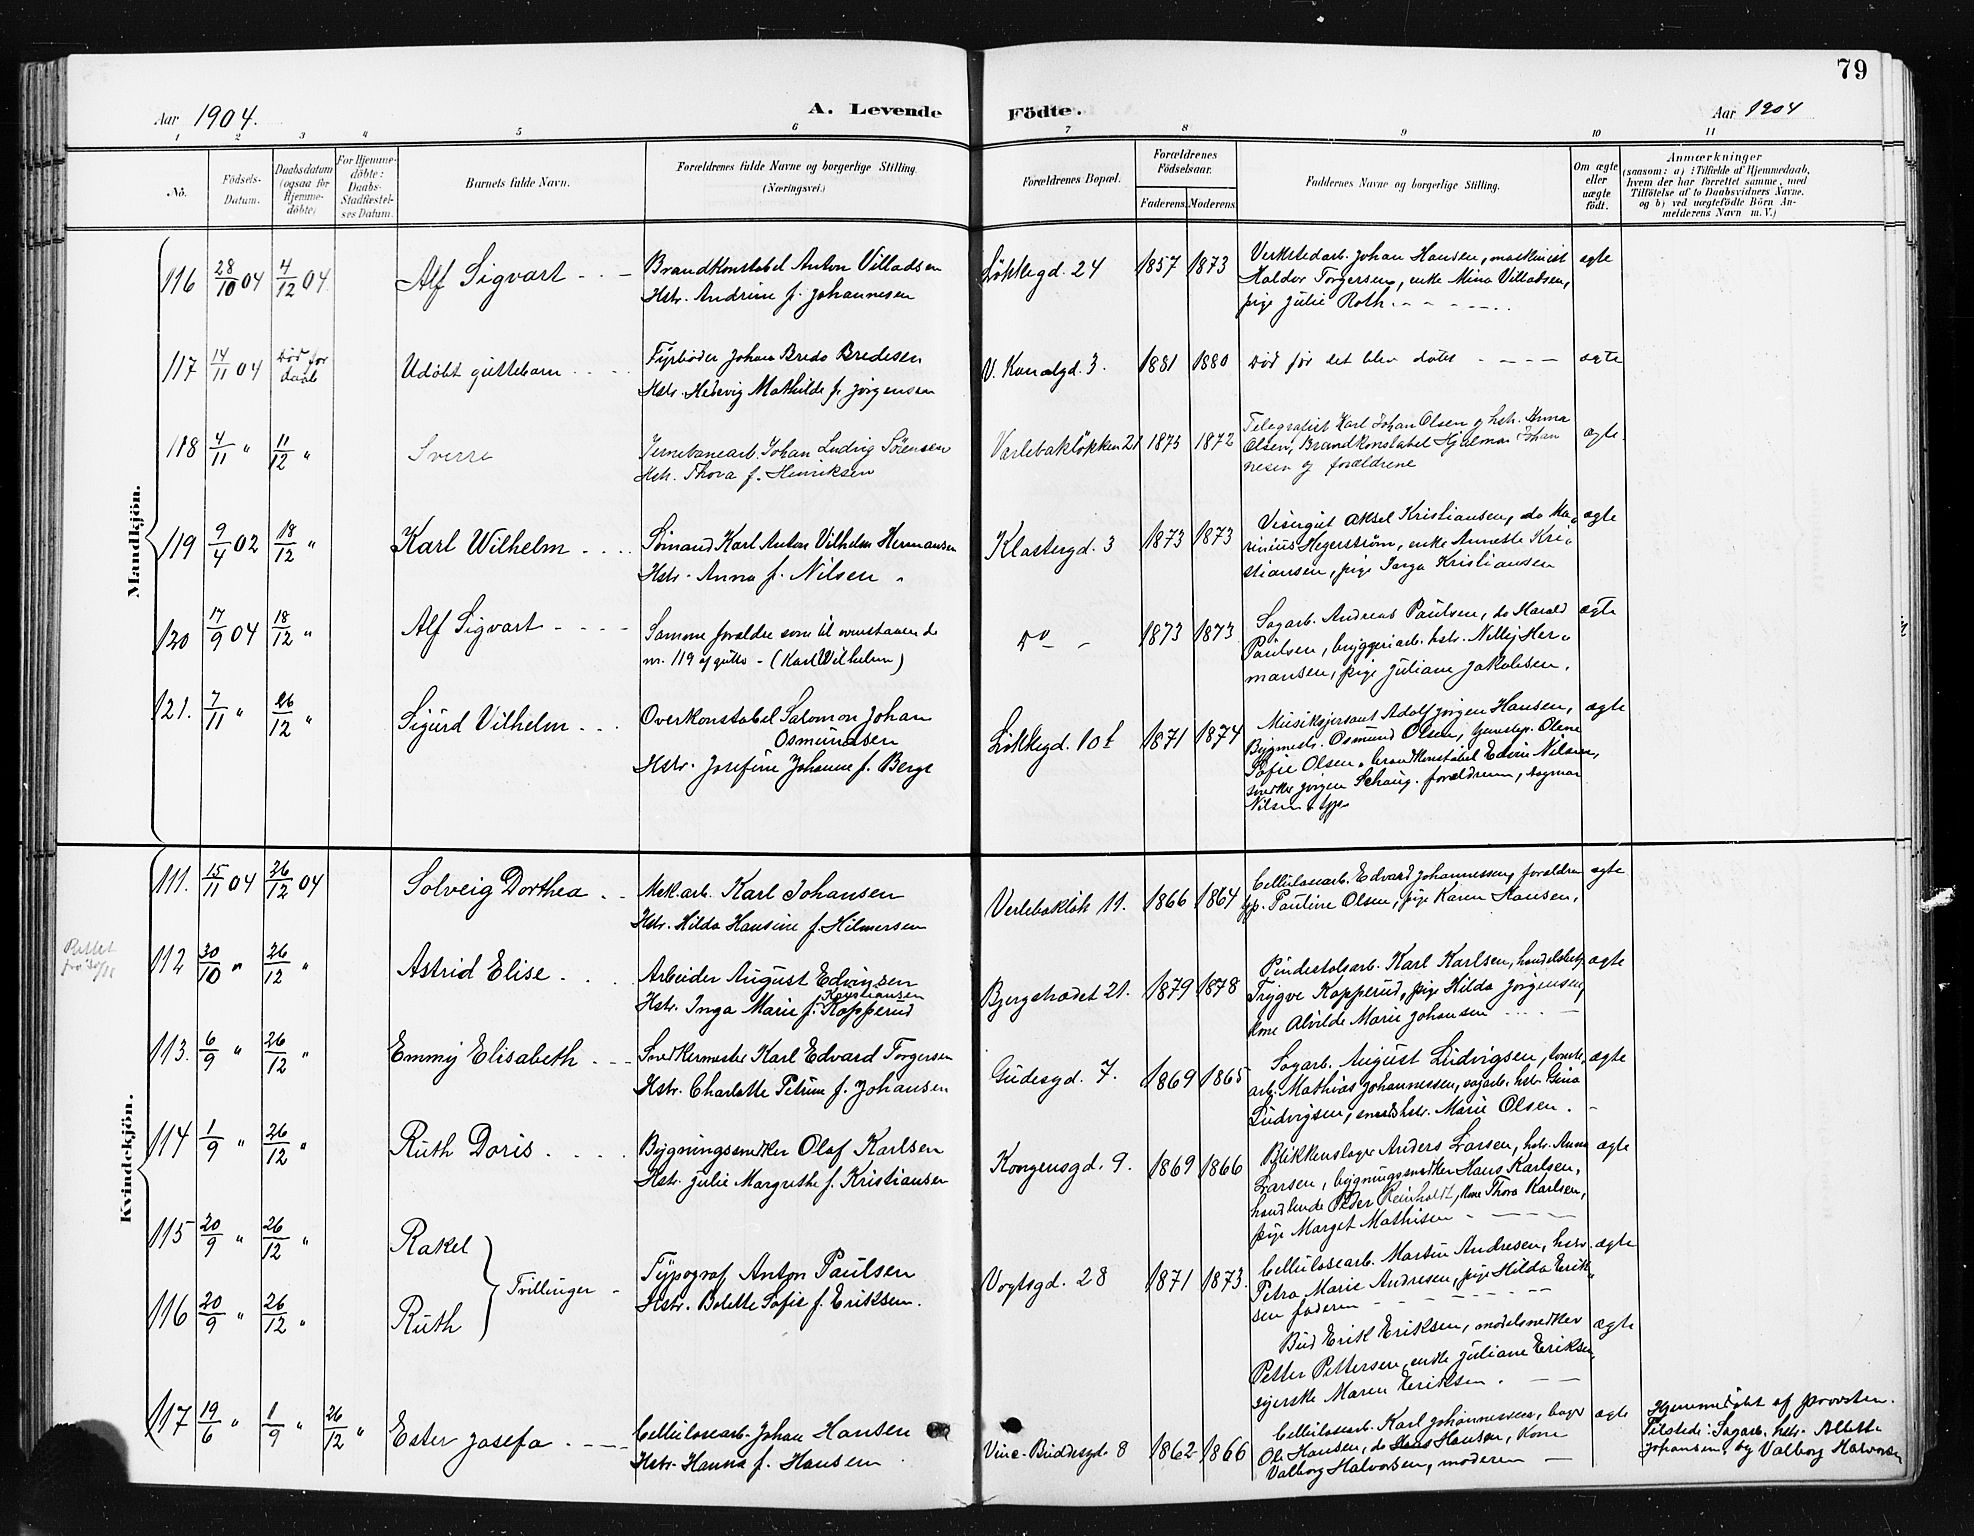 79
Aar 1904.
A. Levende
Födte.
Aar 1904
1 2 3 4 5 6 7 8 9 10 11
No.
Födsels-
Datum.
Daabsdatum
(ogsaa for
Hjemme-
döbte)
For Hjemme-
döbte:
Daabs-
Stadfæstel-
ses Datum.
Barnets fulde Navn.
Forældrenes fulde Navne og borgerlige Stilling.
(Næringsvei.)
Forældrenes Bopæl.
Forældrenes
Födselsaar.
Faderens. Moderens.
Faddernes Navne og borgerlige Stilling.
Om ægte
eller
uægte
födt.
Anmærkninger
(saasom: a) i Tilfælde af Hjemmedaab,
hvem der har forrettet samme, med
Tilföielse af to Daabsvidners Navne.
og b) ved uægtefödte Börn An-
melderens Navn m. V.)
Mandkjön.
116 28/10 04 4/12 04 Alf Sigvart
Brandkonstabel Anton Villadsen
Hstr. Andrine f. Johannesen
Løkkegd. 24 1857 1873
Verkstedarb. Johan Hansen, maskinist
Halder Torgersen, enke Mina Villadsen,
pige Julie Roth
ægte
117 14/11 04 Død før
daab
Udöbt guttebarn
Fyrbøder Johan Bredo Bredesen
Hstr. Hedevig Mathilde f. Jörgensen
V. Kanalgd. 3. 1881 1880
Död før det blev døbt
ægte
118 4/11 " 11/12 " Sverre
Jernebanearb. Johan Ludvig Sörensen
Hstr. Thora f. Henriksen
Varlebakløkken 21 1875 1872
Telegrafist Karl Johan Olsen og hstr. Anna
Olsen, Brandkonstabel Hjalmar Johan
nesen og forældrene
ægte.
119 9/4 02 18/12 " Karl Wilhelm
Sömand Karl Anton Vilhelm Hermansen
Hstr. Anna f. Nilsen
Klostergd. 3 1873 1873
Visergut Aksel Kristiansen, do Ma-
rinius Hegerstrøm, enke Annette Kri-
stiansen, pige Inga Kristiansen
ægte
120 17/9 04 18/12 " Alf Sigvart
Samme forældre som til ovenstaaende
nr. 119 af gutte - (Karl Wilhelm)
Do 1873 1873
Sagarb. Andreas Paulsen, do Harald
Paulsen, bryggeriarb. hstr. Nelly Her-
mansen, pige Juliane Jakobsen.
ægte
121. 7/11 " 26/12 " Sigurd Vilhelm
Overkonstabel Salomon Johan
Osmundsen
Hstr. Josefine Johanne f. Berge
Løkkegd. 10 b 1871 1874
Musiksjersant Adolf Jörgen Hansen,
Bygmestr. Osmund Olsen, tjenstep. Olene
Sofie Olsen, brandkonstabel Edvin Nilsen,
snedker Jörgen Schaug. forældrene, Dagmar
Nilsen
ægte
Kvindekjön.
111. 15/11 04 26/12 04 Solveig Dorthea
Mek. arb. Karl Johansen
Hstr. Hilda Hansine f. Hilmersen
Verlebakløk 11. 1866 1864
Cellulosearb. Edvard Johannessen, forældrene
gp. Pauline Olsen, pige Karen Hansen,
ægte
112 30/10 " 26/12 " Astrid Elise
Arbeider August Edvinsen
Hstr. Inga Marie f. Kristiansen
Kopperud
Bjergstrædet 21. 1879 1878
Pindestolsarb. Karl Karlsen, handelsbetj.
Trygve Kopperud, pige Hilda Jörgensen,
kone Alvilde Marie Johansen
ægte
113. 6/9 " 26/12 " Emmy Elisabeth
Snedkermester Karl Edvard Torgersen
Hstr. Charlotte Petrine f. Johansen
Gudesgd. 7. 1869 1865
Sagarb. August Ludvigsen, tomte-
arb. Mathias Johannessen, sagarb. hstr. Gina
Ludvigsen, smedshstr. Marie Olsen.
ægte
114 1/9 " 26/12 " Ruth Doris
Bygningssnedker Olaf Karlsen
Hstr. Julie Margrethe f. Kristiansen
Kongensgd. 9. 1869 1866
Blikkenslager Anders Larsen, hstr. Anna
Larsen, bygningssnedker Hans Karlsen,
handlende Peder Reinholdt, kone Thora Karlsen,
pige Marget Mathisen
ægte
115 20/9 " 26/12 " Rakel
116 20/9 " 26/12 " Ruth
Tvillinger
Typograf Anton Paulsen
Hstr. Bolette Sofie f. Eriksen.
Vogtsgd. 28 1871 1873
Cellulosearb. Martin Andresen, hstr.
Petra Marie Andresen, pige Hilda Erik-
sen faderen
ægte
Bud Erik Eriksen, modelsnedker
Petter Pettersen, enke Juliane Eriksen,
syerske Maren Eriksen.
ægte
117 19/6 " 1/9 " 26/12 " Ester Josefa
Cellulosearb. Johan Hansen
Hstr. Hanna f. Hansen
Vinc-Buddesgd. 8 1862 1866
Cellulosearb. Karl Johannessen, bager
Ole Hansen, do Hans Hansen, kone
Valborg Halvorsen, moderen
ægte
Hjemmedøbt af provsten.
Tilstede: Sagarb. hstr. Allette
Johansen og Valborg Halvorsen